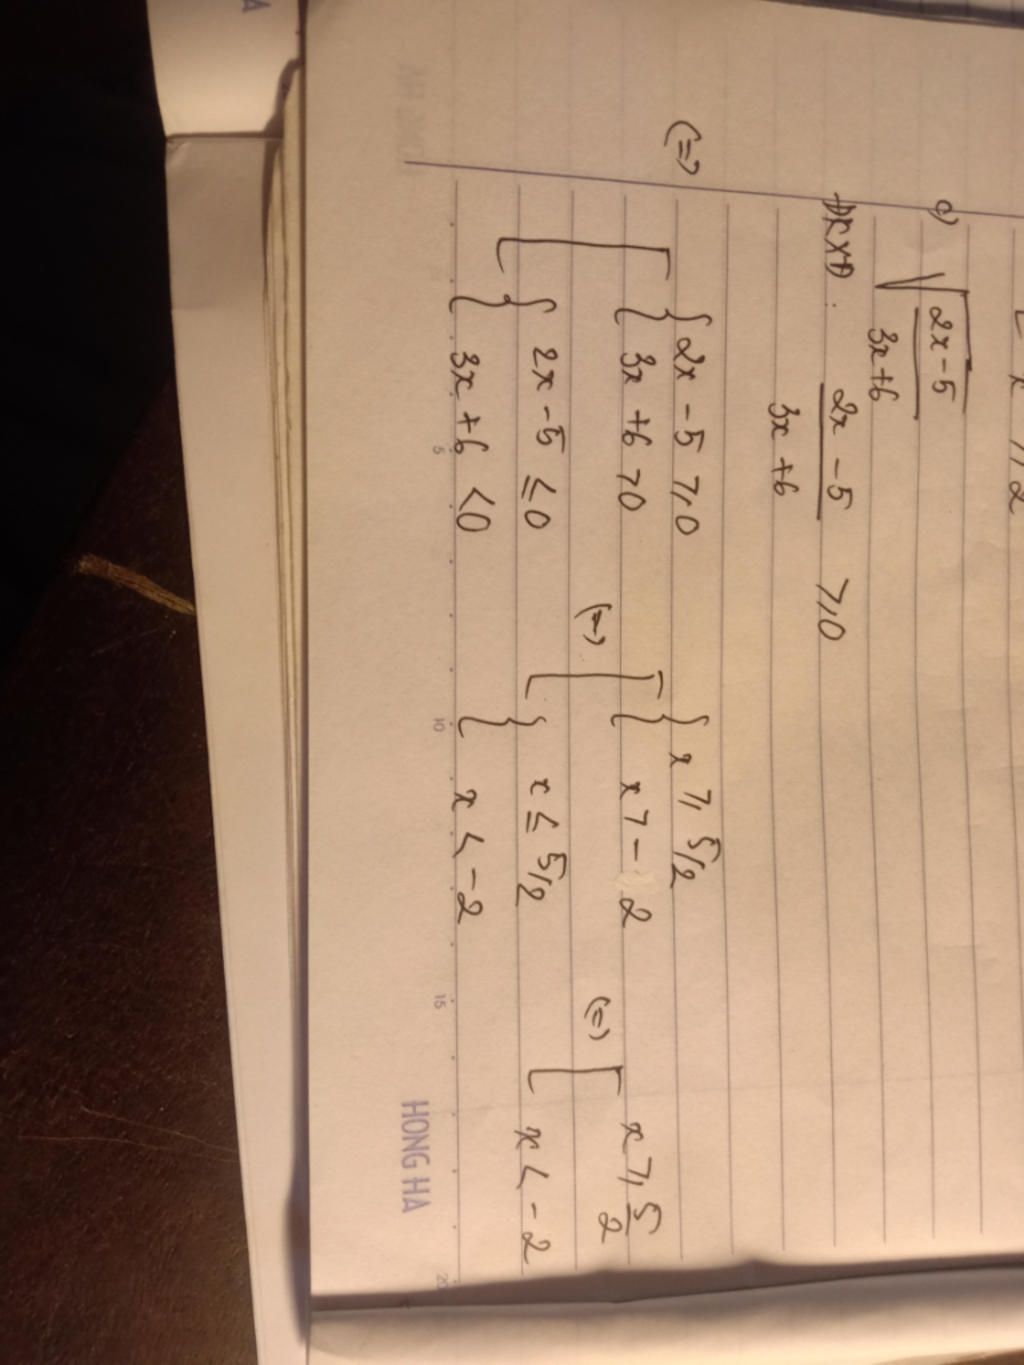 c) √(2x-5 / 3x+6)
ĐKXĐ : 2x-5 / 3x+6 ≥ 0
(=) [ { 2x-5 ≥ 0
3x+6 > 0
{ 2x-5 ≤ 0
3x+6 < 0
(=) [ { x ≥ 5/2
x > -2
{ x ≤ 5/2
x < -2
(=) [ x ≥ 5/2
x < -2
5 10 15 20
HONG HA